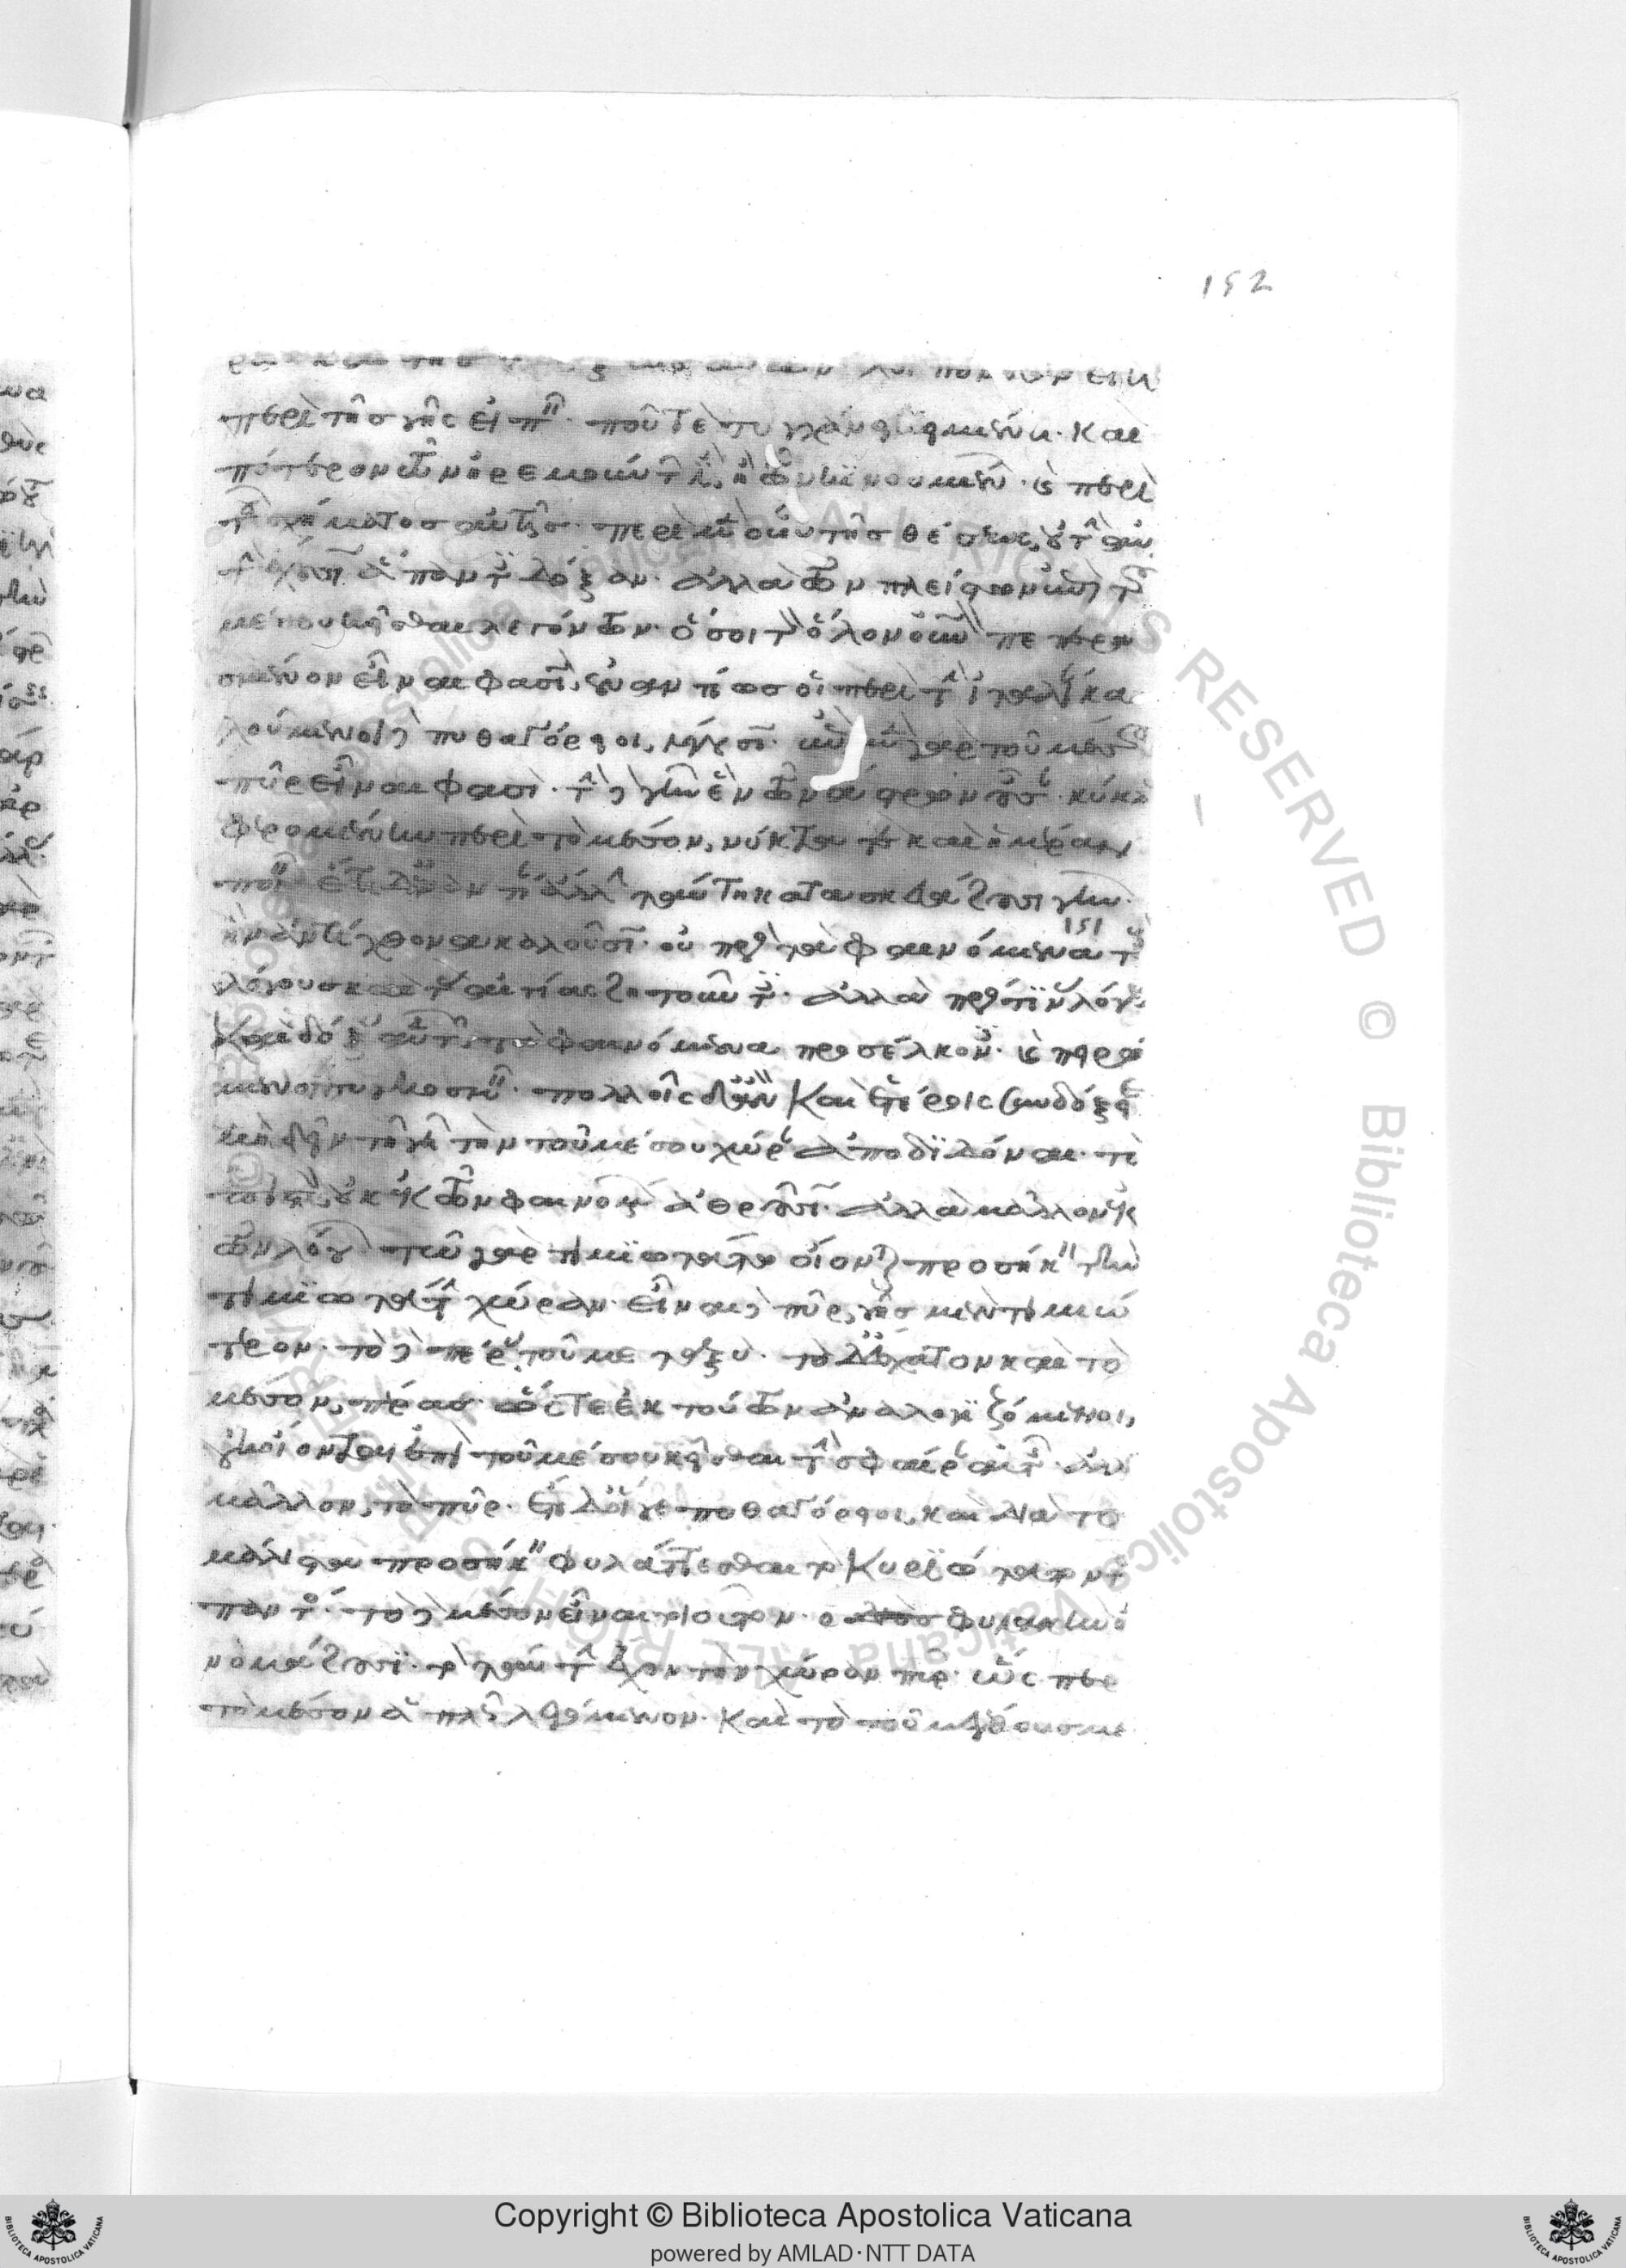 152
περὶ τῆς γῆς εἰπεῖν· ποῦ τε τυγχάνει κειμένη· καὶ
πότερον τῶν ἠρεμούντων ἐστὶν ἢ τῶν κινουμένων· καὶ περὶ
τοῦ σχήματος αὐτῆς· περὶ μὲν οὖν τῆς θέσεως, οὐ τὴν αὐ
τὴν ἔχουσιν ἅπαντες δόξαν· ἀλλὰ τῶν πλείστων ἐπὶ τοῦ
μέσου κεῖσθαι λεγόντων· ὅσοι τὸν ὅλον οὐρανὸν πεπερα
σμένον εἶναι φασὶν, ἐναντίως οἱ περὶ τὴν ἰταλίαν κα
λούμενοι δὲ πυθαγόρειοι, λέγουσιν· ἐπὶ μὲν γὰρ τοῦ μέσου
πῦρ εἶναι φασὶ· τὴν δὲ γῆν ἓν τῶν ἄστρων οὖσαν κύκλῳ
φερομένην περὶ τὸ μέσον, νύκτα τε καὶ ἡμέραν
ποιεῖν· ἔτι δ' ἐναντίαν ἄλλην ταύτῃ κατασκευάζουσι γῆν·
151
ἣν ἀντίχθονα καλοῦσιν· οὐ πρὸς τὰ φαινόμενα τοὺς
λόγους καὶ τὰς αἰτίας ζητοῦντες· ἀλλὰ πρός τινας λόγους
καὶ δόξας αὐτῶν τὰ φαινόμενα προσέλκοντες· καὶ πειρώ
μενοι συγκοσμεῖν· πολλοῖς δ' ἂν καὶ ἑτέροις συνδόξειε
μὴ δεῖν τῇ γῇ τὴν τοῦ μέσου χώραν ἀποδιδόναι· τὸ
πιστὸν οὐκ ἐκ τῶν φαινομένων ἀθροῦσιν· ἀλλὰ μᾶλλον ἐκ
τῶν λόγων· τῷ γὰρ τιμιωτάτῳ οἴονται προσήκειν τὴν
τιμιωτάτην χώραν· εἶναι δὲ πῦρ, γῆς μὲν τιμιώ
τερον· τὸ δὲ πέρας τοῦ μεταξύ· τὸ δ' ἔσχατον καὶ τὸ
μέσον, πέρας· ὥστε ἐκ τούτων ἀναλογιζόμενοι,
οὐκ οἴονται ἐπὶ τοῦ μέσου κεῖσθαι τῆς σφαίρας αὐτὴν· ἀλλὰ
μᾶλλον, τὸ πῦρ· ἔτι δ' οἵ γε πυθαγόρειοι, καὶ διὰ τὸ
μάλιστα προσήκειν φυλάττεσθαι τὸ κυριώτατον τοῦ
παντός· τὸ δὲ μέσον εἶναι τοιοῦτον· ὃ διὸς φυλακὴν ὀ
νομάζουσι· τὸ ταύτην ἔχον τὴν χώραν πῦρ· ὥσπερ
τὸ μέσον ἁπλῶς λεγόμενον· καὶ τὸ τοῦ μεγέθους με
Copyright © Biblioteca Apostolica Vaticana
powered by AMLAD·NTT DATA